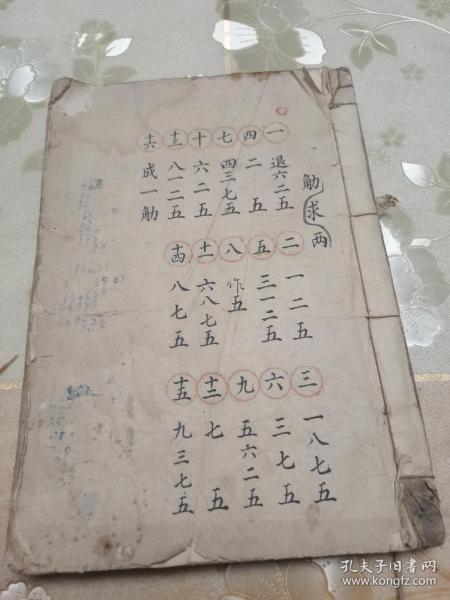 觔求兩
一 退六二五 二 一二五 三 一八七五
四 二五 五 三一二五 六 三七五
七 四三七五 八 作五 九 五六二五
十 六二五 十一 六八七五 十二 七五
十三 八一二五 十四 八七五 十五 九三七五
十六 成一觔
孔夫子旧书网
www.kongfz.com